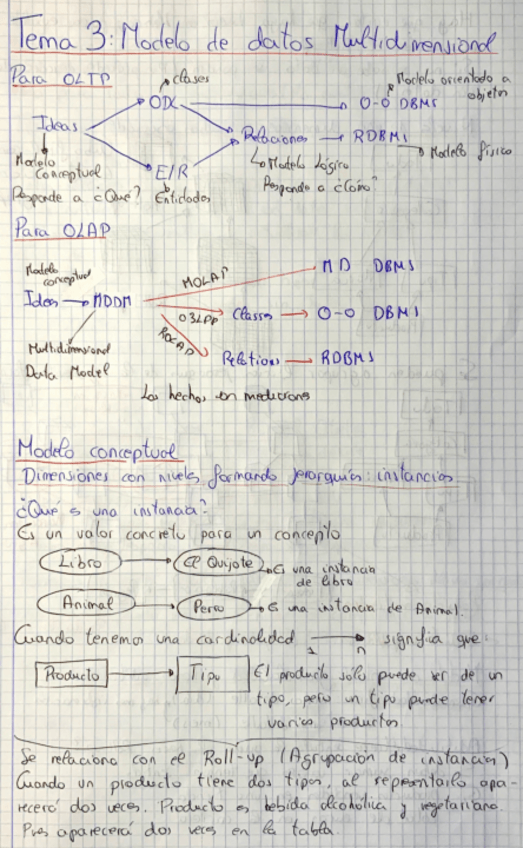 Tema 3: Modelo de datos Multidimensional
Para OLTP
clases
Modelo orientado a
objetos
ODL
O-O DBMS
Ideas
Relaciones
RDBMS
Modelo físico
Modelo
Conceptual
E/R
Modelo Lógico
Responde a ¿Que?
Entidades
Responde a ¿Cómo?
Para OLAP
Modelo
conceptual
MOLAP
MD DBMS
Ideas
MDDM
O3LAP
Classes
O-O DBMS
ROLAP
Relations
RDBMS
Multidimensional
Data Model
Los hechos son mediciones
Modelo conceptual
Dimensiones con niveles formando jerarquías: instancias
¿Qué es una instancia?
Es un valor concreto para un concepto
Libro
El Quijote
Es una instancia
de libro
Animal
Perro
Es una instancia de Animal.
Cuando tenemos una cardinalidad 1 n signfia que:
Producto
Tipo
El producto solo puede ser de un
tipo, pero un tipo puede tener
varios productos.
Se relaciona con el Roll-up (Agrupación de instancias)
Cuando un producto tiene dos tipos, al representarlo apa-
recerá dos veces. Producto es bebida alcohólica y vegetariana.
Pues aparecerá dos veces en la tabla.